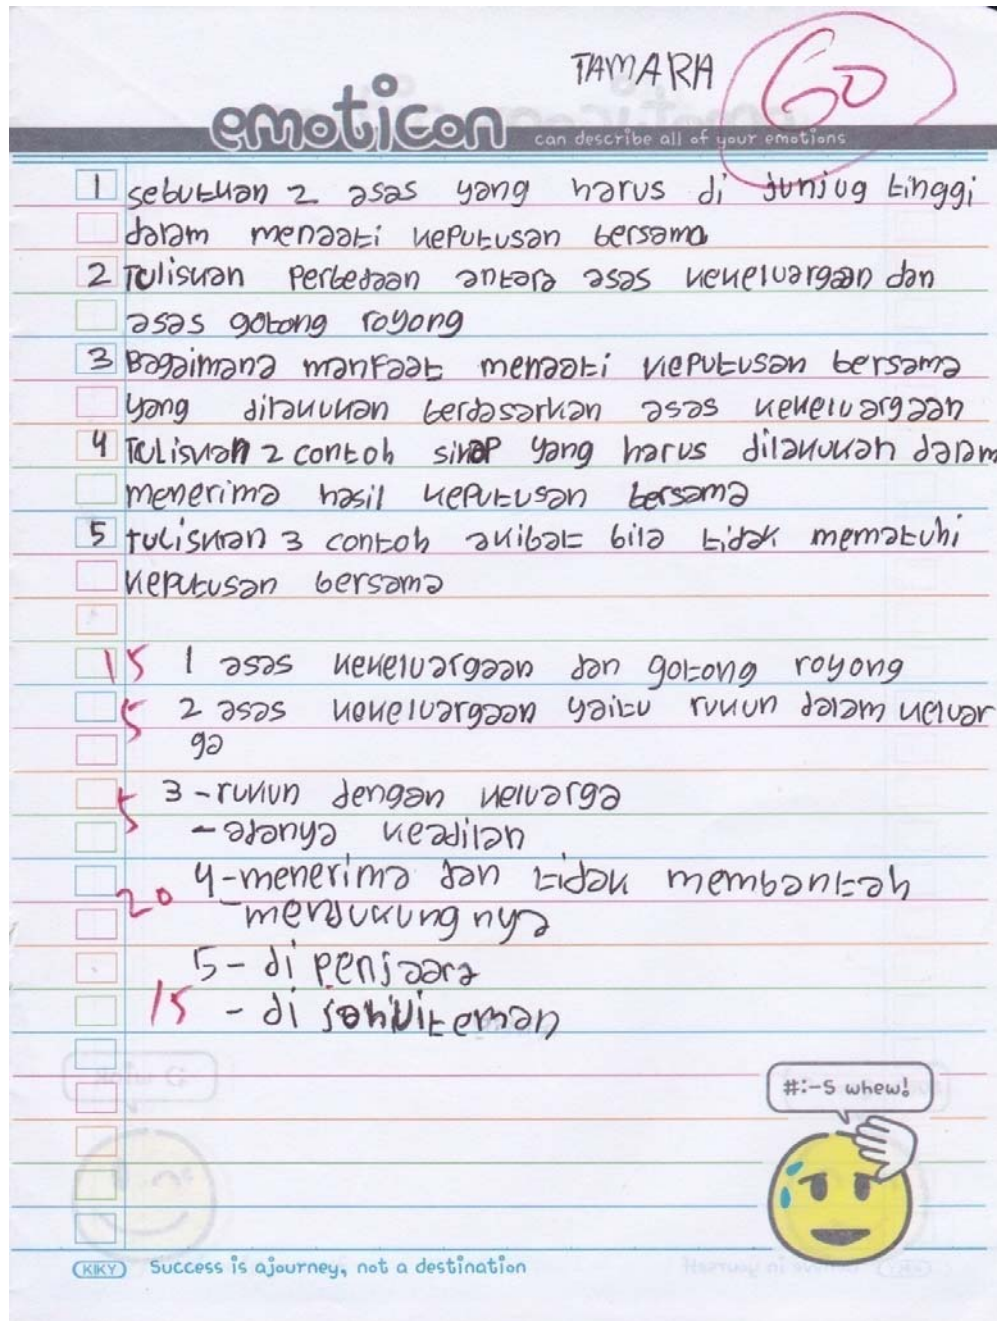 TAMARA
60
emoticon can describe all of your emotions
1 sebutkan 2 asas yang harus di junjug tinggi
dalam menaati keputusan bersama
2 Tuliskan Perbedaan antara asas kekeluargaan dan
asas gotong royong
3 Bagaimana manfaat menaati keputusan bersama
yang dilakukan berdasarkan asas kekeluargaan
4 Tuliskan 2 contoh sikap yang harus dilakukan dalam
menerima hasil keputusan bersama
5 tuliskan 3 contoh akibat bila tidak mematuhi
keputusan bersama
15 1 asas kekeluargaan dan gotong royong
5 2 asas kekeluargaan yaitu rukun dalam keluar
ga
5 3 - rukun dengan keluarga
- adanya keadilan
20 4 - menerima dan tidak membantah
- mendukung nya
5 - di penjaara
15 - di
#:-S whew!
KIKY Success is ajourney, not a destination